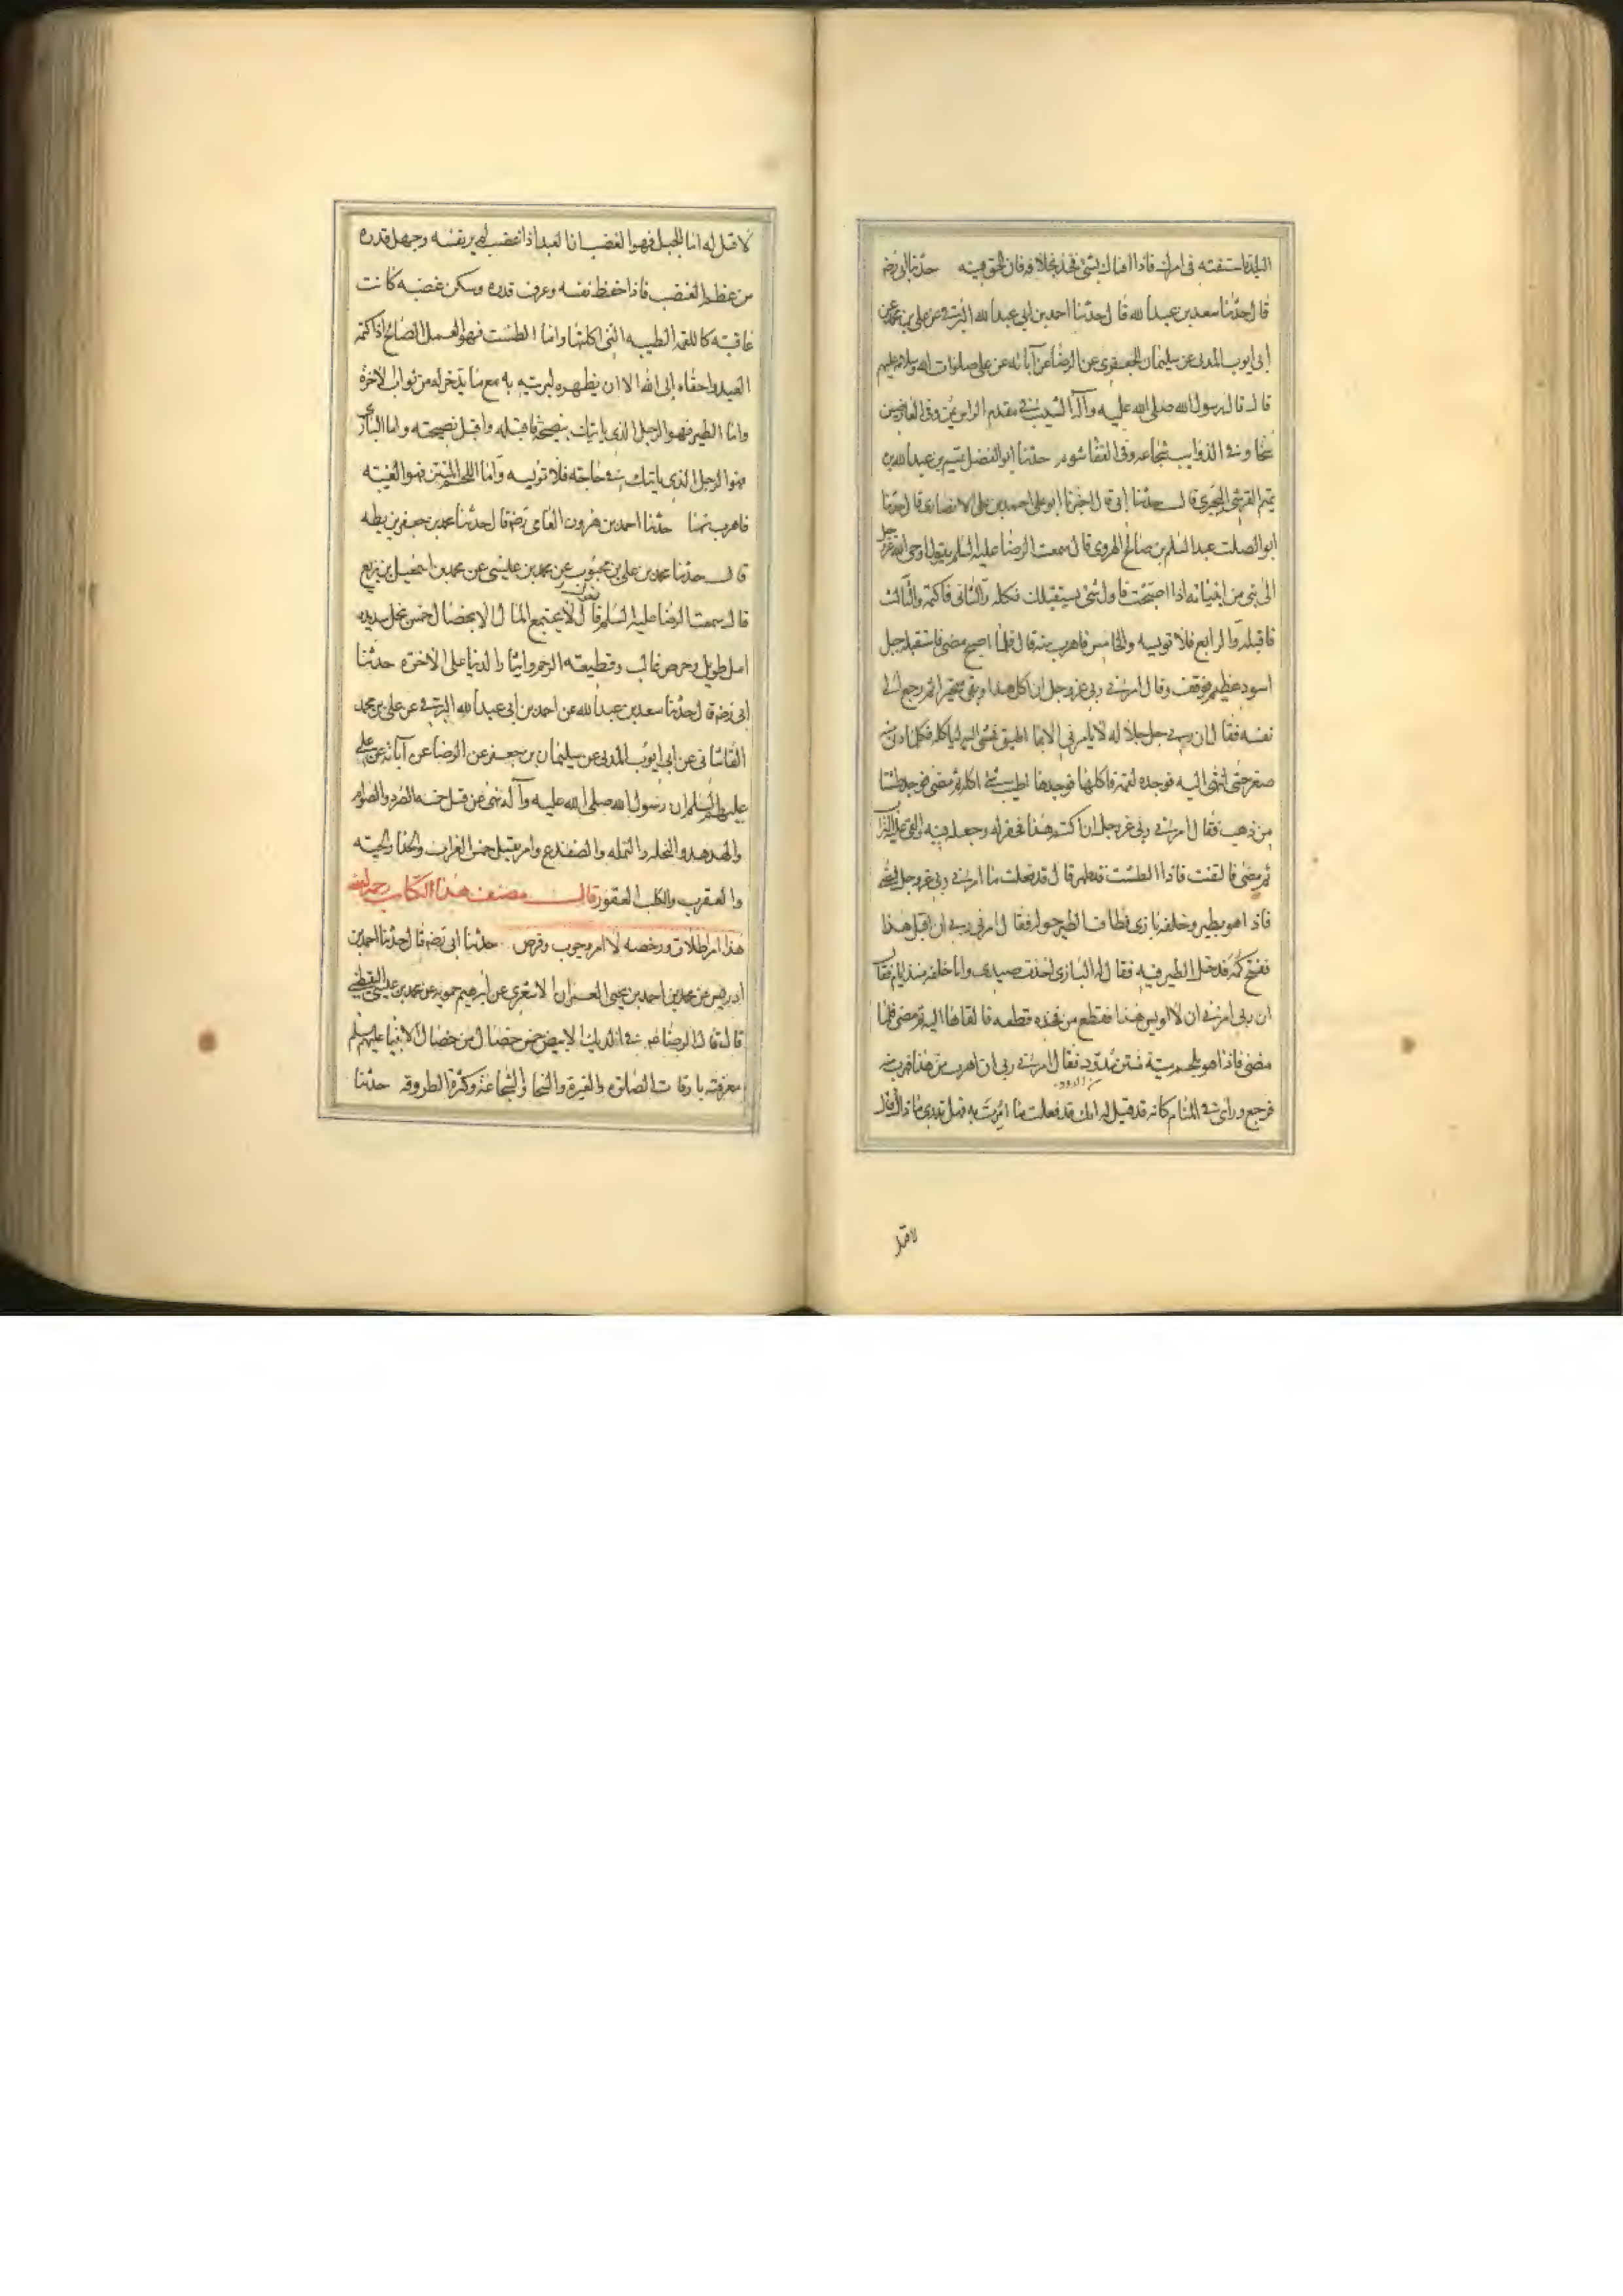 البلد فاستفته فى امرك فاذا افتاك بشئ فخذ بخلافه فان الحق فيه حدثنا ابى رضه
قال حدثنا سعد بن عبدالله قال حدثنا احمد بن ابى عبدالله البرقى عن على بن محمد عن
ابى ايوب المدنى عن سليمان الجعفرى عن الرضا عن آبائه عن على صلوات الله وسلامه عليهم
قال قال رسول الله صلى الله عليه وآله الشيب فى مقدم الراس يمن وفى العارضين
سخا وفى الذوايب شجاعه وفى القفا شوم حدثنا ابو الفضل تميم بن عبدالله بن
تميم القرشى الحيرى قال حدثنا ابى قال اخبرنا ابو على احمد بن على الانصارى قال حدثنا
ابو الصلت عبد السلم بن صالح الهروى قال سمعت الرضا عليه السلم يقول اوحى الله عز وجل
الى نبى من انبيائه اذا اصبحت فاول شئ يستقبلك فكله والثانى فاكتمه والثالث
فاقبله والرابع فلا تويسه والخامس فاهرب منه قال فلما اصبح مضى فاستقبله جبل
اسود عظيم فوقف وقال امرنى ربى عز وجل ان اكل هذا وبقى متحيرا ثم رجع الى
نفسه فقال ان ربى جل جلاله لا يامرنى الا بما اطيق فمشى اليه لياكله فكلما دنى منه
صغر حتى انتهى اليه فوجده لقمه فاكلها فوجدها اطيب شئ اكله ثم مضى فوجد طستا
من ذهب فقال امرنى ربى عز وجل ان اكتم هذا فحفر له وجعله فيه والقى عليه التراب
ثم مضى فالتفت فاذا الطست قد ظهر قال قد فعلت ما امرنى ربى عز وجل فمضى
فاذا هو بطير وخلفه بازى فطاف الطير حوله فقال امرنى ربى ان اقبل هذا
ففتح كمه فدخل الطير فيه فقال له البازى اخذت صيدى وانا خلفه منذ ايام فقال
ان ربى امرنى ان لا اويس هذا فقطع من فخذه قطعه فالقاها اليه ثم مضى فلما
مضى فاذا هو بلحم ميته منتن مدود فقال امرنى ربى ان اهرب من هذا فهرب منه
من الدود
فرجع وراى فى المنام كانه قد قيل له انك قد فعلت ما امرت به فهل تدرى ما ذاك قال
لا قيل
لا قيل له اما الجبل فهو الغضب ان العبد اذا غضب لم ير نفسه وجهل قدره
من عظم الغضب فاذا حفظ نفسه وعرف قدره وسكن غضبه كانت
عاقبته كاللقمه الطيبه التى اكلتها واما الطست فهو العمل الصالح اذا كتمه
العبد واخفاه ابى الله الا ان يظهره ليزينه به مع ما يدخر له من ثواب الاخرة
واما الطير فهو الرجل الذى ياتيك بنصيحة فاقبله واقبل نصيحته واما البازى
فهو الرجل الذى ياتيك فى حاجته فلا تويسه واما اللحم المنتن فهو الغيبه
فاهرب منها حدثنا احمد بن هرون الفامى رضه قال حدثنا محمد بن جعفر بن بطه
قال حدثنا محمد بن على بن محبوب عن محمد بن عيسى عن محمد بن اسمعيل بن بزيع
قال سمعت الرضا عليه السلم يقول لا يجتمع المال الا بخصال خمس بخل شديد
امل طويل وحرص غالب وقطيعه الرحم وايثار الدنيا على الاخرة حدثنا
ابى رضه قال حدثنا سعد بن عبدالله عن احمد بن ابى عبدالله البرقى عن على بن محمد
القاسانى عن ابى ايوب المدنى عن سليمان بن جعفر عن الرضا عن آبائه عن على
عليهم السلم ان رسول الله صلى الله عليه وآله نهى عن قتل خمسه الصرد والصوام
والهدهد والنحله والنمله والضفدع وامر بقتل خمس الغراب والحدا والحيه
والعقرب والكلب العقور قال مصنف هذا الكتاب رحمه الله
هذا امر اطلاق ورخصه لا امر وجوب وفرض حدثنا ابى رضه قال حدثنا احمد بن
ادريس عن محمد بن احمد بن يحيى العمران الاشعرى عن ابرهيم حمويه عن محمد بن عيسى اليقطينى
قال قال الرضا عم فى الديك الابيض خمس خصال من خصال الانبيا عليهم السلم
معرفته باوقات الصلوه والغيرة والسخا والشجاعة وكثرة الطروقه حدثنا